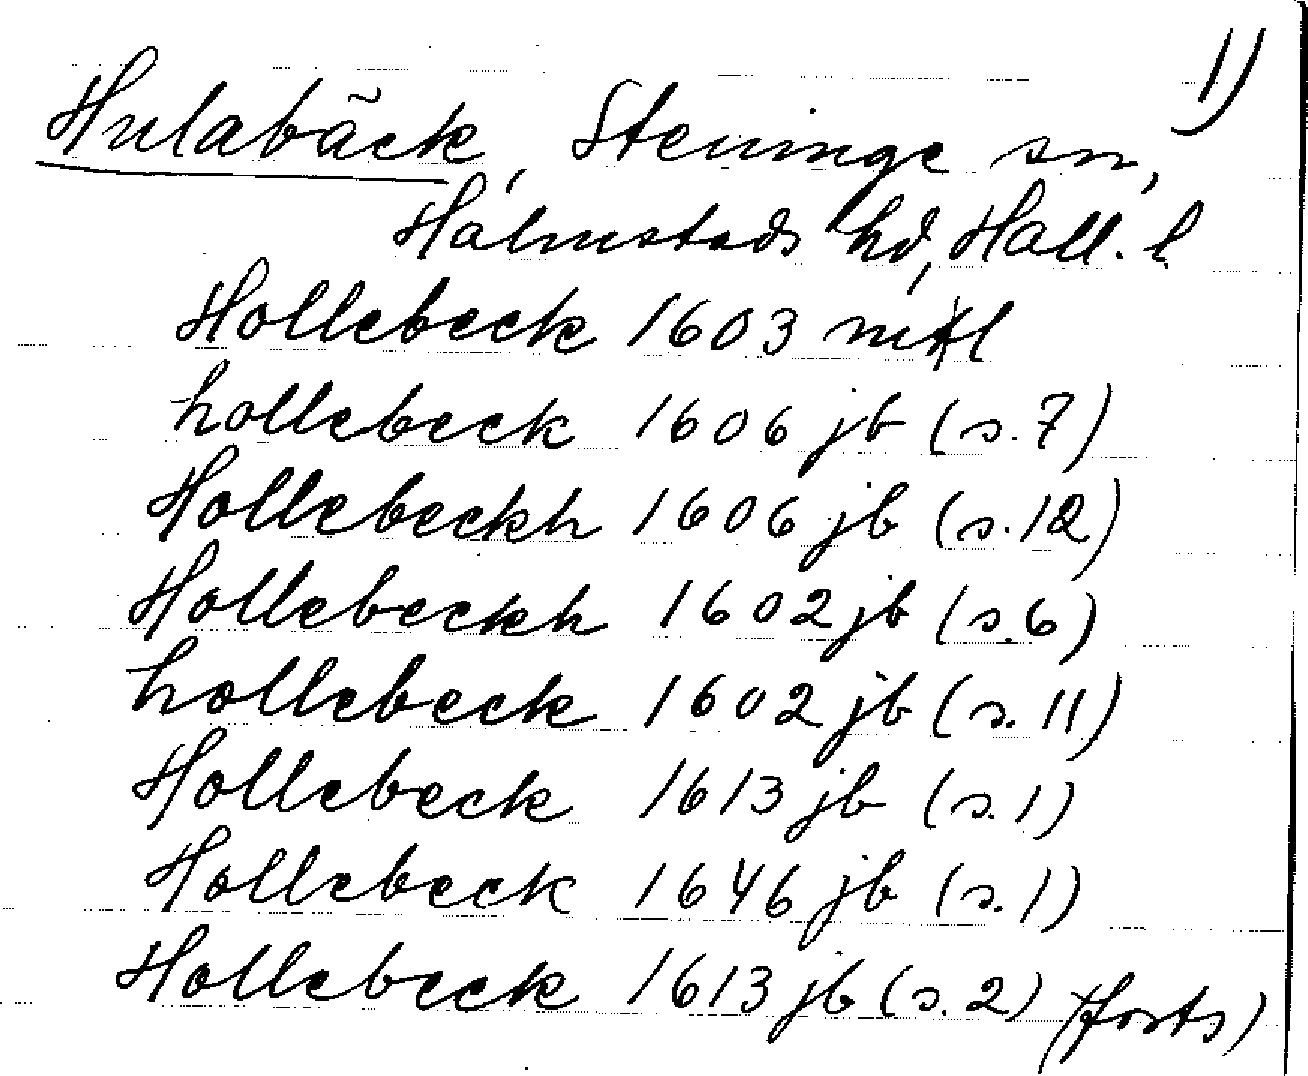 1)
Hulabäck, Steninge sn,
Halmstads hd, Hall. l
Hollebeck 1603 mtl
hollebeck 1606 jb (s. 7)
Hollebeckh 1606 jb (s. 12)
Hollebeckh 1602 jb (s. 6)
hollebeck 1602 jb (s. 11)
Hollebeck 1613 jb (s. 1)
Hollebeck 1646 jb (s. 1)
Hollebeck 1613 jb (s. 2) (forts)